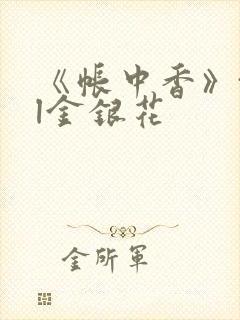 《帐中香》
|金银花
金所軍